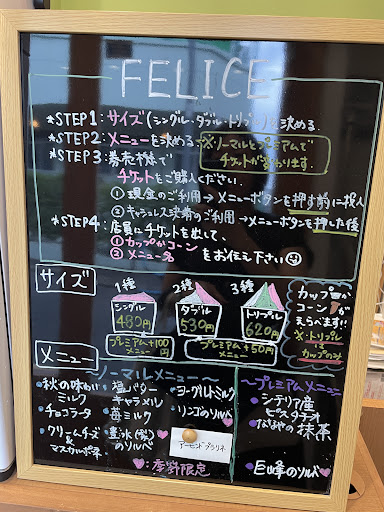 FELICE
*STEP1:サイズ(シングル・ダブル・トリプル)を決める.
*STEP2:メニューを決める→※ノーマルとプレミアムで
チケットが変わります.
*STEP3:券売機で
チケットをご購入ください.
①現金のご利用→メニューボタンを押す前に投入
②キャッシュレス決済のご利用→メニューボタンを押した後
*STEP4:店員にチケットを出して、
①カップかコーン
②メニュー名
をお伝え下さい
サイズ
1種
シングル
480円
2種
ダブル
530円
3種
トリプル
620円
プレミアム+100円
メニュー
プレミアム+50円
メニュー
カップか
コーンが
えらべます!!
※トリプル
は
カップのみ
メニュー
〜ノーマルメニュー〜
・秋の味わい
ミルク
・チョコラータ
・クリームチーズ
&
マスカルポーネ
・塩バター
キャラメル
・苺ミルク
・豊水(梨)
のソルベ♥
・ヨーグルトミルク
・リンゴのソルベ♥
アーモンドプラリネ
♥:季節限定
〜プレミアムメニュー〜
・シチリア産
ピスタチオ
・抹茶
・巨峰のソルベ♥